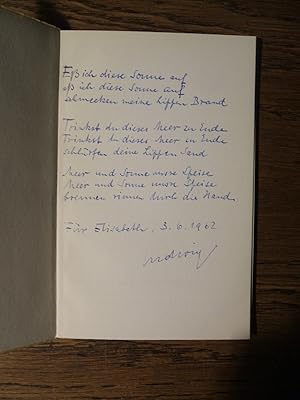 Eß ich diese Sonne auf
eß ich diese Sonne auf
schmecken meine Lippen Brand
Trinkst du dieses Meer zu Ende
Trinkst du dieses Meer zu Ende
schlürfen deine Lippen Sand
Meer und Sonne unsre Speise
Meer und Sonne unsre Speise
brennen rinnen durch die Hand
Für Elisabeth, 3.6.1962